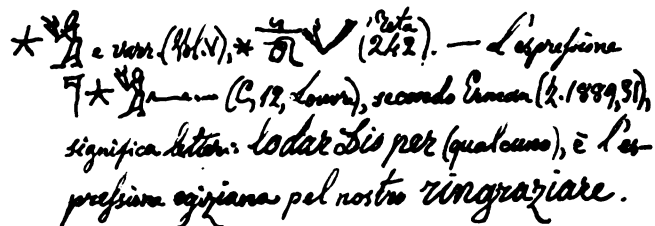 e varr. (Vol. V), (242). — L'espressione
(C, 12, Louvre), secondo Erman (Z. 1889, 31),
significa letter: lodar Dio per (qualcuno), è l'es-
pressione egiziana pel nostro ringraziare.